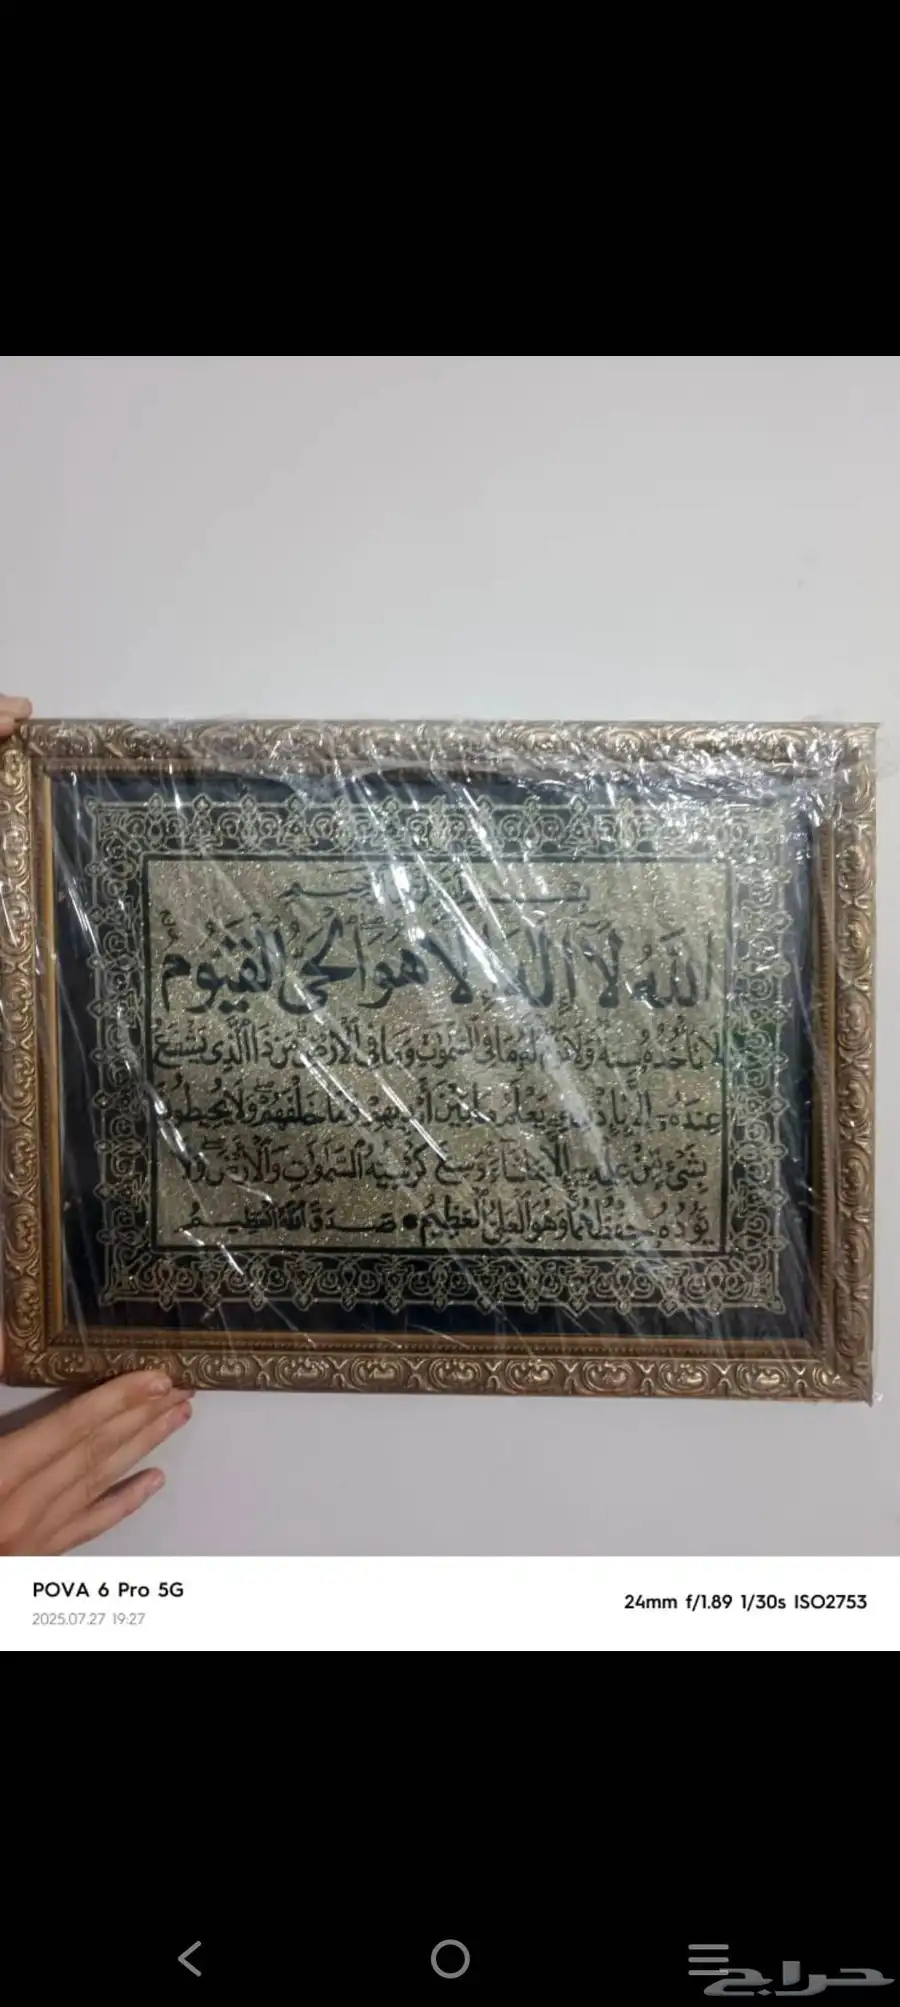 اللَّهُ لَا إِلَٰهَ إِلَّا هُوَ الْحَيُّ الْقَيُّومُ
لَا تَأْخُذُهُ سِنَةٌ وَلَا لَهُ مَا فِي السَّمٰوَاتِ وَمَا فِي الْأَرْضِ مَنْ ذَا الَّذِي يَشْفَعُ
عِنْدَهُ إِلَّا يَعْلَمُ مَا بَيْنَ أَيْدِيهِمْ وَمَا خَلْفَهُمْ وَلَا يُحِيطُونَ
بِشَيْءٍ مِنْ عِلْمِهِ إِلَّا بِمَا شَاءَ وَسِعَ كُرْسِيُّهُ السَّمٰوَاتِ وَالْأَرْضَ وَلَا
يَؤُدُهُ حِفْظُهُمَا وَهُوَ الْعَلِيُّ الْعَظِيمُ • صَدَقَ اللَّهُ الْعَظِيمُ
POVA 6 Pro 5G
2025.07.27 19:27
24mm f/1.89 1/30s ISO2753
حراج